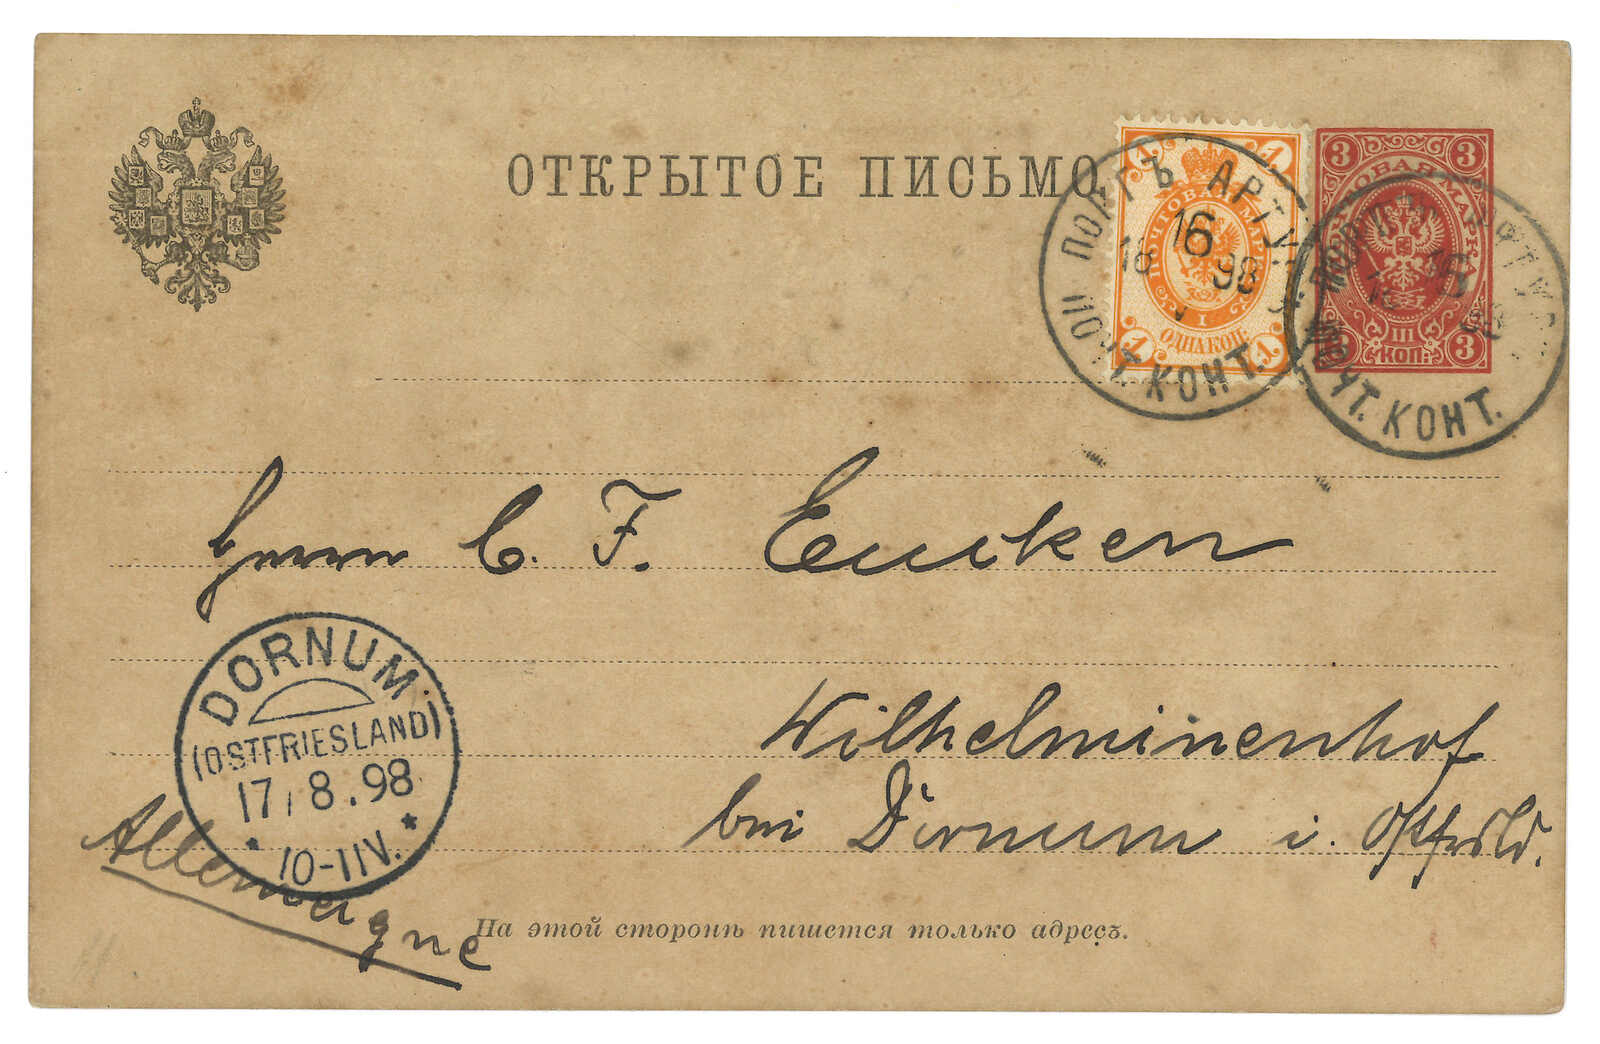 ОТКРЫТОЕ ПИСЬМО.
1 1
ПОЧТОВАЯ МАРКА
1
ОДНА КОП.
1 1
3 3
ПОЧТОВАЯ МАРКА
III
КОП.
3 3
ПОРТЪ АРТУ
16
18 98
V
ПОЧТ. КОНТ.
ПОРТЪ АРТУРЪ
16
98
ПОЧТ. КОНТ.
Herrn C. F. Eucken
Wilhelminenhof
bei Dornum i. Ostfrsld.
DORNUM.
(OSTFRIESLAND)
17/8.98
* 10-11V. *
Allemagne
На этой сторонѣ пишется только адресъ.